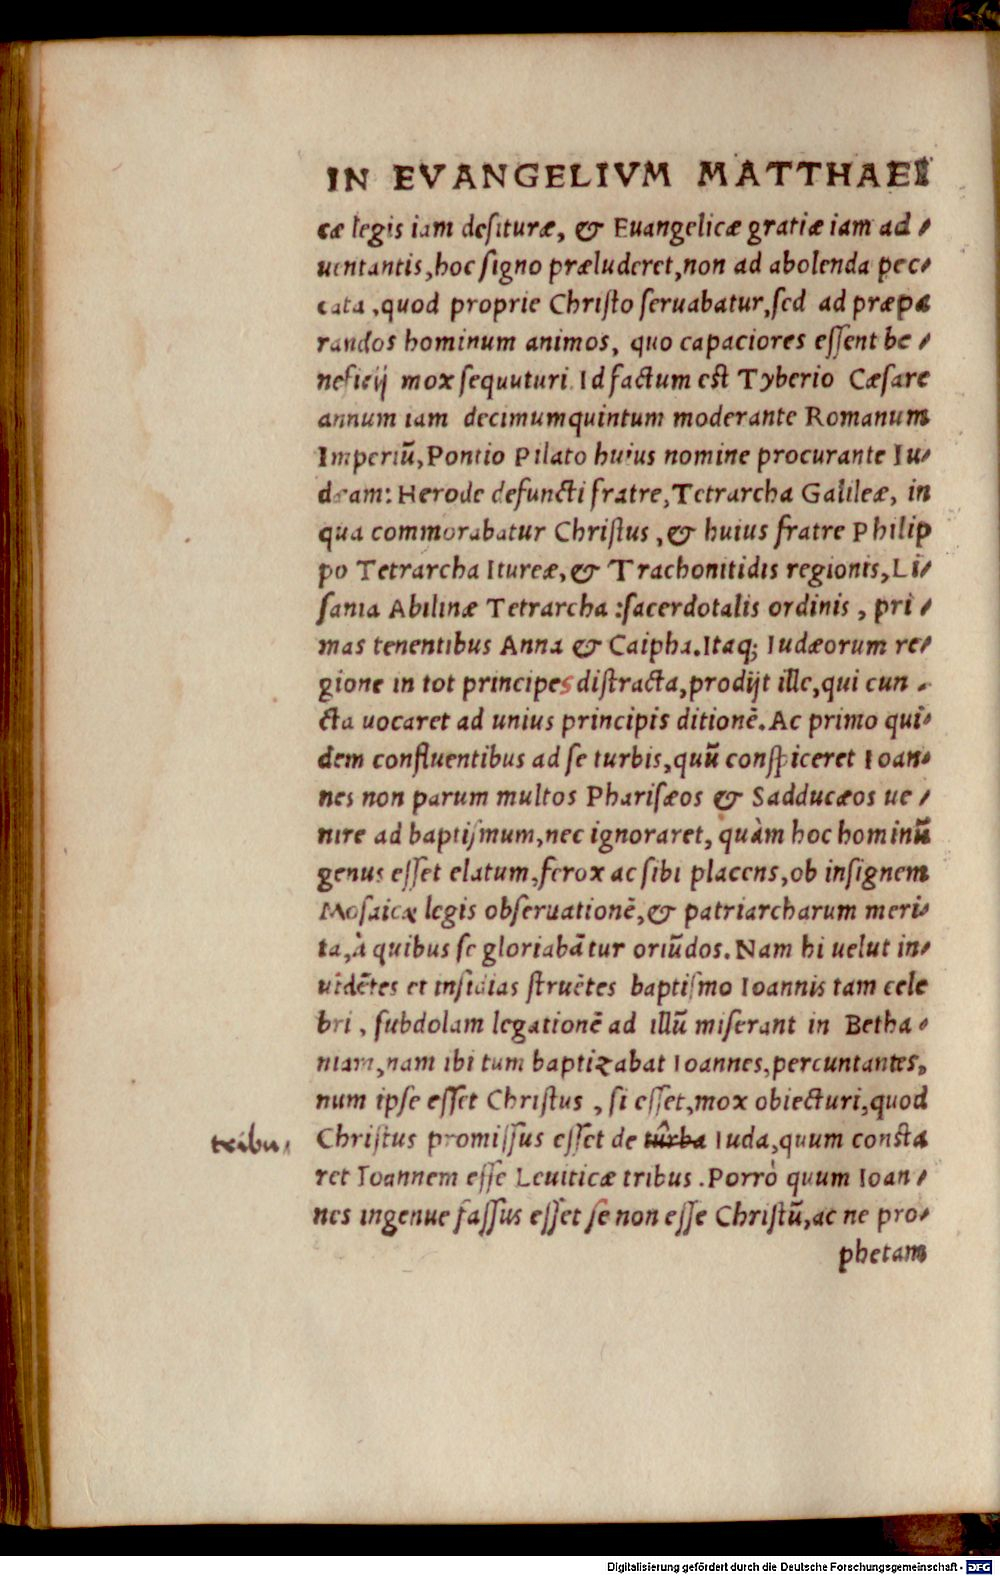 IN EVANGELIVM MATTHAEI
cæ legis iam desituræ, & Euangelicæ gratiæ iam ad⸗
uentantis, hoc signo præluderet, non ad abolenda pec⸗
cata, quod proprie Christo seruabatur, sed ad præpa
randos hominum animos, quo capaciores essent be⸗
neficij mox sequuturi. Id factum est Tyberio Cæsare
annum iam decimumquintum moderante Romanum
Imperiũ, Pontio Pilato huius nomine procurante Iu⸗
dæam: Herode defuncti fratre, Tetrarcha Galileæ, in
qua commorabatur Christus, & huius fratre Philip
po Tetrarcha Itureæ, & Trachonitidis regionis, Li⸗
sania Abilinæ Tetrarcha: sacerdotalis ordinis, pri⸗
mas tenentibus Anna & Caipha. Itaq; Iudæorum re⸗
gione in tot principes distracta, prodijt ille, qui cun⸗
cta uocaret ad unius principis ditionē. Ac primo qui⸗
dem confluentibus ad se turbis, quũ conspiceret Ioan⸗
nes non parum multos Pharisæos & Sadducæos ue⸗
nire ad baptismum, nec ignoraret, quàm hoc hominũ
genus esset elatum, ferox ac sibi placens, ob insignem
Mosaicæ legis obseruationē, & patriarcharum meri⸗
ta, à quibus se gloriabātur oriũdos. Nam hi uelut in⸗
uidētes et insidias struētes baptismo Ioannis tam cele
bri, subdolam legationē ad illũ miserant in Betha⸗
niam, nam ibi tum baptizabat Ioannes, percuntantes,
num ipse esset Christus, si esset, mox obiecturi, quod
tribu,
Christus promissus esset de turba Iuda, quum consta
ret Ioannem esse Leuiticæ tribus. Porrò quum Ioan⸗
nes ingenue fassus esset se non esse Christũ, ac ne pro⸗
phetam
Digitalisierung gefördert durch die Deutsche Forschungsgemeinschaft - DFG